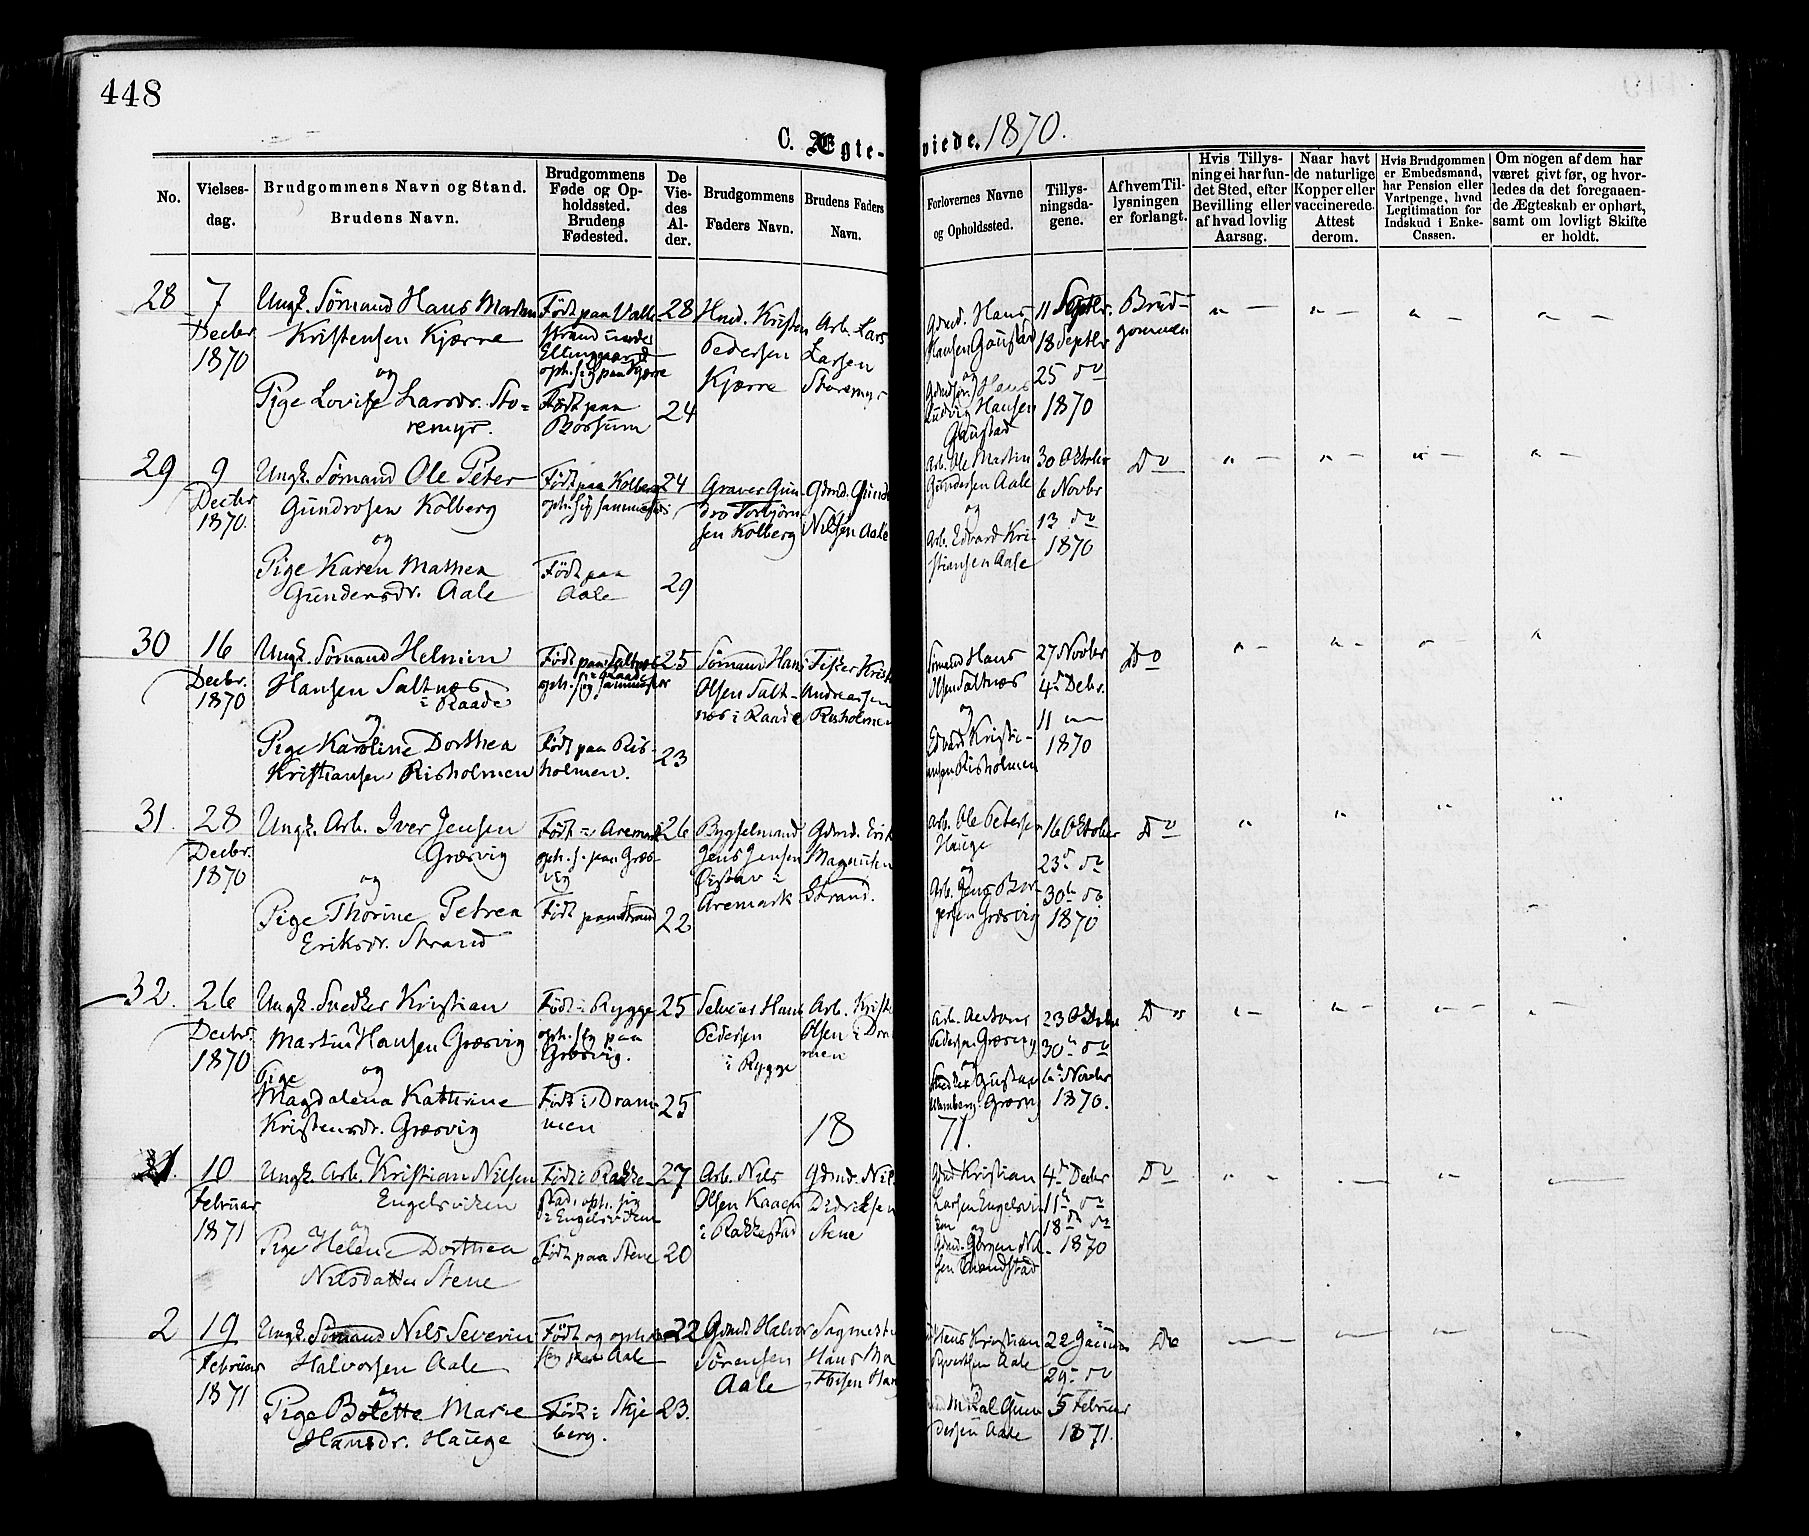 448
C. Ægte-viede. 1870.
No.
Vielses-
dag.
Brudgommens Navn og Stand.
Brudens Navn.
Brudgommens
Føde og Op-
holdssted.
Brudens
Fødested.
De
Vie-
des
Al-
der.
Brudgommens
Faders Navn.
Brudens Faders
Navn.
Forlovernes Navne
og Opholdssted.
Tillys-
ningsda-
gene.
Af hvem Til-
lysningen
er forlangt.
Hvis Tillys-
ning ei har fun-
det Sted, efter
Bevilling eller
af hvad lovlig
Aarsag.
Naar havt
de naturlige
Kopper eller
vaccinerede.
Attest
derom.
Hvis Brudgommen
er Embedsmand,
har Pension eller
Vartpenge, hvad
Legitimation for
Indskud i Enke-
Cassen.
Om nogen af dem har
været givt før, og hvor-
ledes da det foregaaen-
de Ægteskab er ophørt,
samt om lovligt Skifte
er holdt.
28
7
Decbr.
1870
Ungk. Sømand Hans Martin
Kristensen Kjærre
og
Pige Lovise Larsdr. Sto-
remyr.
Født paa Valle
Strand under
Elingaard
oph. sig paa Kjærre
Født paa
Borsum
28
24
Hmd. Kristen
Pedersen
Kjærre
Arb. Lars
Larsen
Storemyr
Gdmd. Hans
Hansen Gaustad
og
Hans
Ludvig Hansen
Gaustad
11 Septbr.
18 Septbr
25 do
1870
Brud-
gommen
29
9
Decbr
1870.
Ungk. Sømand Ole Peter
Gundrosen Kolberg
og
Pige Karen Mathea
Gundersdr. Aale
Født paa Kolberg
oph. sig sammesteds
Født paa
Aale
24
29
Graver Gun-
dro Torbjørn-
sen Kolberg
Gdmd. Gunder
Nilsen Aale
Arb. Ole Martin
Gundersen Aale
og
Arb. Edvard Kri-
stiansen Aale
30 Oktober
6 Novbr
13 do
1870
Do
30
16
Decbr.
1870
Ungk. Sømand Helmin
Hansen Saltnæs
i Raade
og
Pige Karoline Dorthea
Kristiansen Risholmen
Født paa Saltnæs
i Raade
oph. sig sammesteds
Født paa Ris-
holmen.
25
23
Sømand Hans
Olsen Salt-
næs i Raade
Fisker Krist
Andreassen
Risholmen
Sømand Hans
Olsen Saltnæs
og
Edvard Kristi-
ansen Risholmen
27 Novbr
4de Debr.
11
1870
Do
31.
28
Decbr.
1870
Ungk. Arb. Iver Jensen
Græsvig
og
Pige Thorine Petrea
Eriksdr. Strand
Født i Aremark
oph. s. paa Græs-
vig
Født paa Strand
26
22
Bygselmand
Jens Jensen
i
Aremark
Gdmd. Erik
Magnusen
Strand.
Arb. Ole Petersen
Hauge
og
Arb. Jens Bor-
gersen Græsvig
16 Oktober
23de do
30te do
1870
Do
32.
26
Decbr.
1870
Ungk. Snedker Kristian
Martin Hansen Græsvig
og
Pige
Magdalena Kathrine
Kristensdr. Græsvig
Født i Rygge
oph. sig paa
Græsvig.
Født i Dram-
men
25
25
Selveier Hans
Pedersen
i Rygge
Arb. Krist
Olsen i Dram
men
Arb. Antons
Pedersen Græsvig
og
Snedker Gustav
Græsvig
23 Oktober
30te do
6te Novbr
1870.
Do
18
71.
1.
10
Februar
1871
Ungk. Arb. Kristian Nilsen
Engelsviken
og
Pige Helene Dorthea
Nilsdatter Stene
Født i Rakke-
stad, oph. sig
i Engelsviken
Født paa Stene
27
20
Arb. Nils
Olsen Kaagen
i Rakkestad
Gdmd. Nil
Dedriksen
Stene
Gdmd Kristian
Larsen Engelsvi
ken og
Gdmd. Jørgen Nil-
sen
4de Decbr
11te do
18de do
1870
Do
2
19
Februar
1871
Ungk. Sømand Nils Severin
Halvorsen Aale
og
Pige Bolette Marie
Hansdr. Hauge
Født og opholder
sig paa Aale
Født i Skje
berg.
22
23.
Gdmd Halvor
Sørensen
Aale
Sagmester
Hans Ma
thisen Hau
Hans Kristian
Syvertsen Aale
og
Mikal Gun
dersen Aale
22 Januar
29 do
5 Februar
1871.
Do